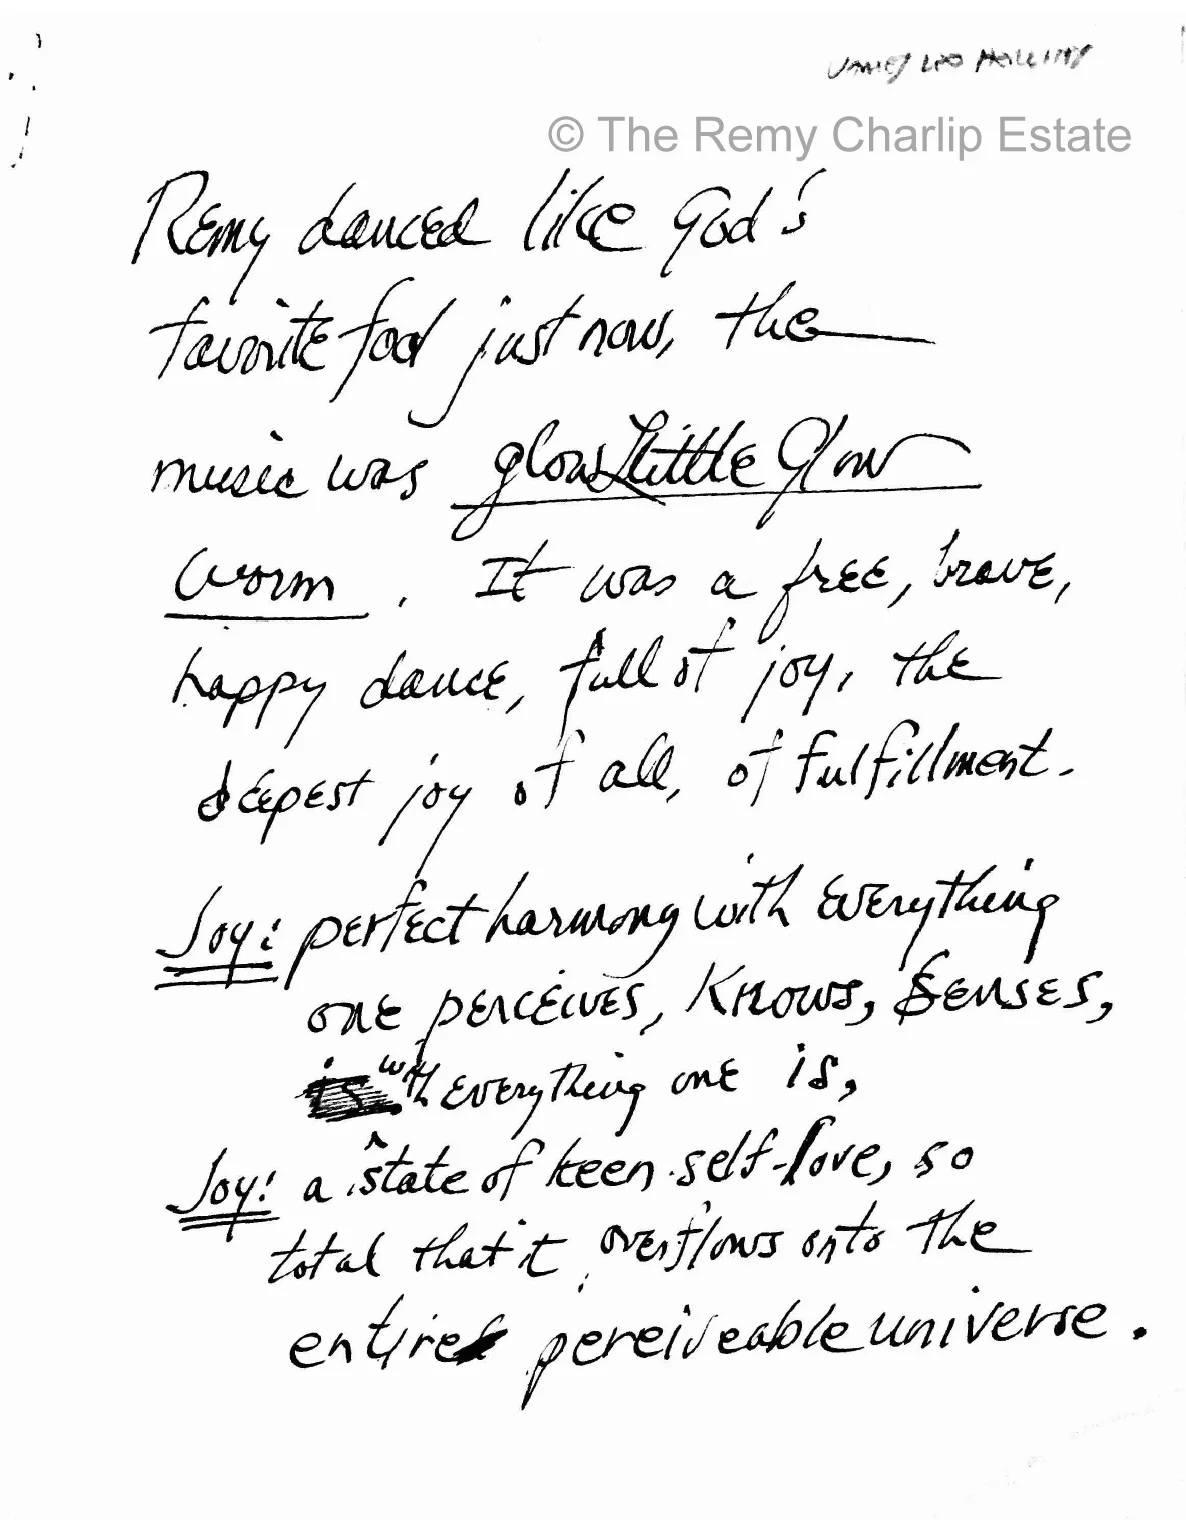 James Leo Herlihy
© The Remy Charlip Estate
Remy danced like God's
favorite fool just now, the
music was glow Little Glow
worm. It was a free, brave,
happy dance, full of joy, the
deepest joy of all, of fulfillment.
Joy: perfect harmony with everything
one perceives, knows, senses,
is with everything one is,
Joy: a state of keen self-love, so
total that it overflows onto the
entire perceiveable universe.